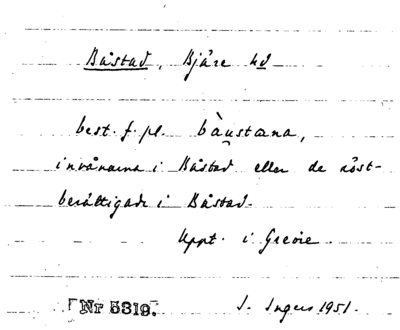 Båstad, Bjäre hd
best. f. pl. bàu̯stæna,
invånarna i Båstad eller de röst-
berättigade i Båstad.
Uppt. i Grevie.
Nr 5319. I. Ingers 1951.